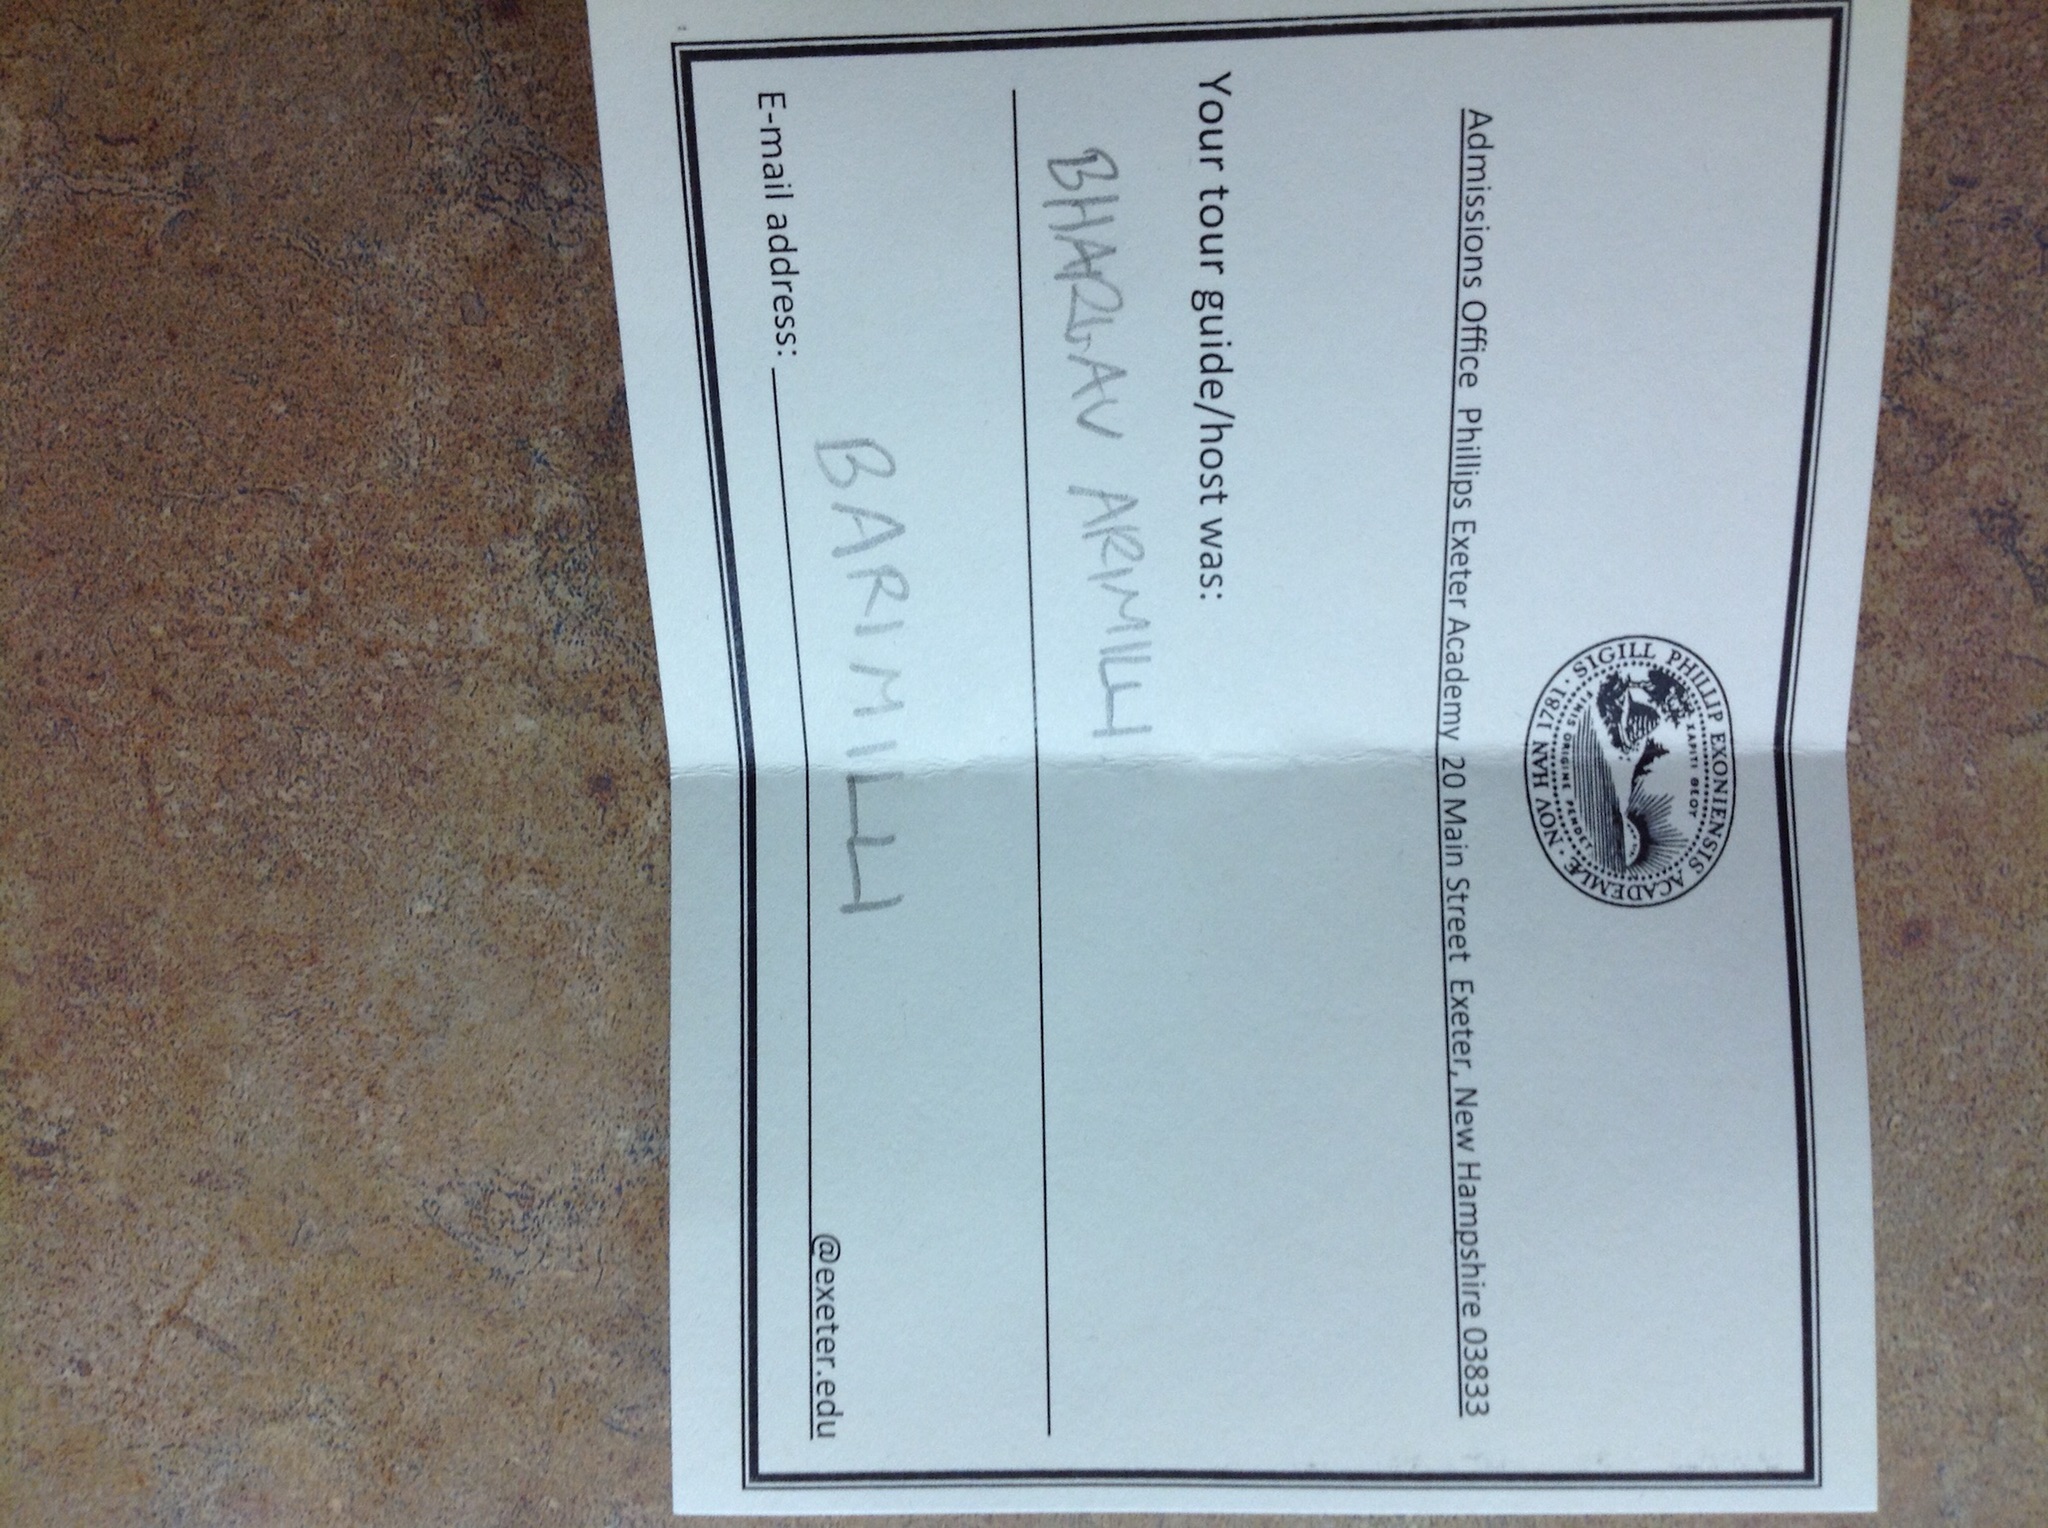 SIGILL PHILLIP EXONIENSIS ACADEMIÆ · NOV HAN 1781 ·
FINIS ORIGINE PENDET
Admissions Office Phillips Exeter Academy 20 Main Street Exeter, New Hampshire 03833
Your tour guide/host was:
BHARGAV ARIMILLI
BARIMILLI
E-mail address: @exeter.edu